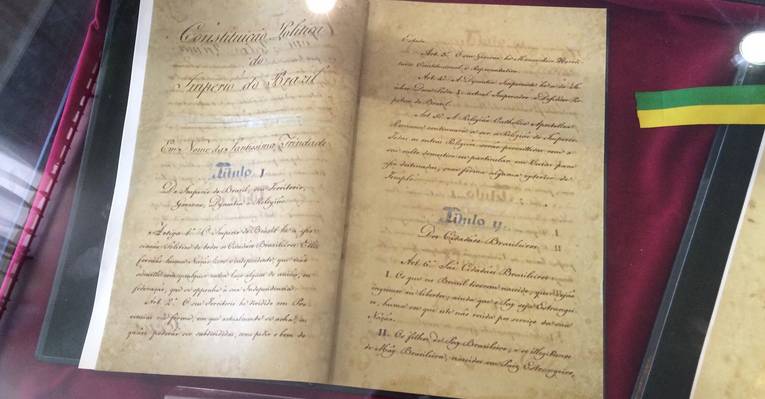 Constituição Politica
do
Imperio do Brazil
Em Nome da Santissima Trindade
Titulo I
Do Imperio do Brazil, seu Territorio,
Governo, Dynastia e Religião
Artigo 1º O Imperio do Brazil he a asso-
ciação Politica de todos os Cidadãos Brasileiros. Elles
formão huma Nação livre e independente, que não
admitte com qualquer outra laço algum de união, ou
federação, que se opponha á sua Independencia
Art. 2º O seu Territorio he dividido em Pro-
vincias na fórma, em que actualmente se acha, as
quaes poderão ser subdivididas, como pedir o bem do
Estado
Art. 3º O seu Governo he Monarchico Heredi-
tario Constitucional, e Representativo
Art. 4º A Dynastia Imperante he a do Se-
nhor Dom Pedro I actual Imperador, e Defensor Per-
petuo do Brazil
Art. 5º A Religião Catholica Apostolica
Romana continuará a ser a Religião do Imperio
Todas as outras Religiões serão permittidas com o
seu culto domestico ou particular, em Casas para
isso destinadas, sem fórma alguma exterior de
Templo
I
Titulo 2º
II
Dos Cidadãos Brasileiros
Art. 6º São Cidadãos Brasileiros
I. Os que no Brazil tiverem nascido, quer sejão
ingenuos ou libertos, ainda que o Pay seja Estrangei-
ro, huma vez que este não resida por serviço de sua
Nação
II. Os filhos de Pay Brasileiro, e os illegitimos
de Mãy Brasileira, nascidos em Paiz Estrangeiro,